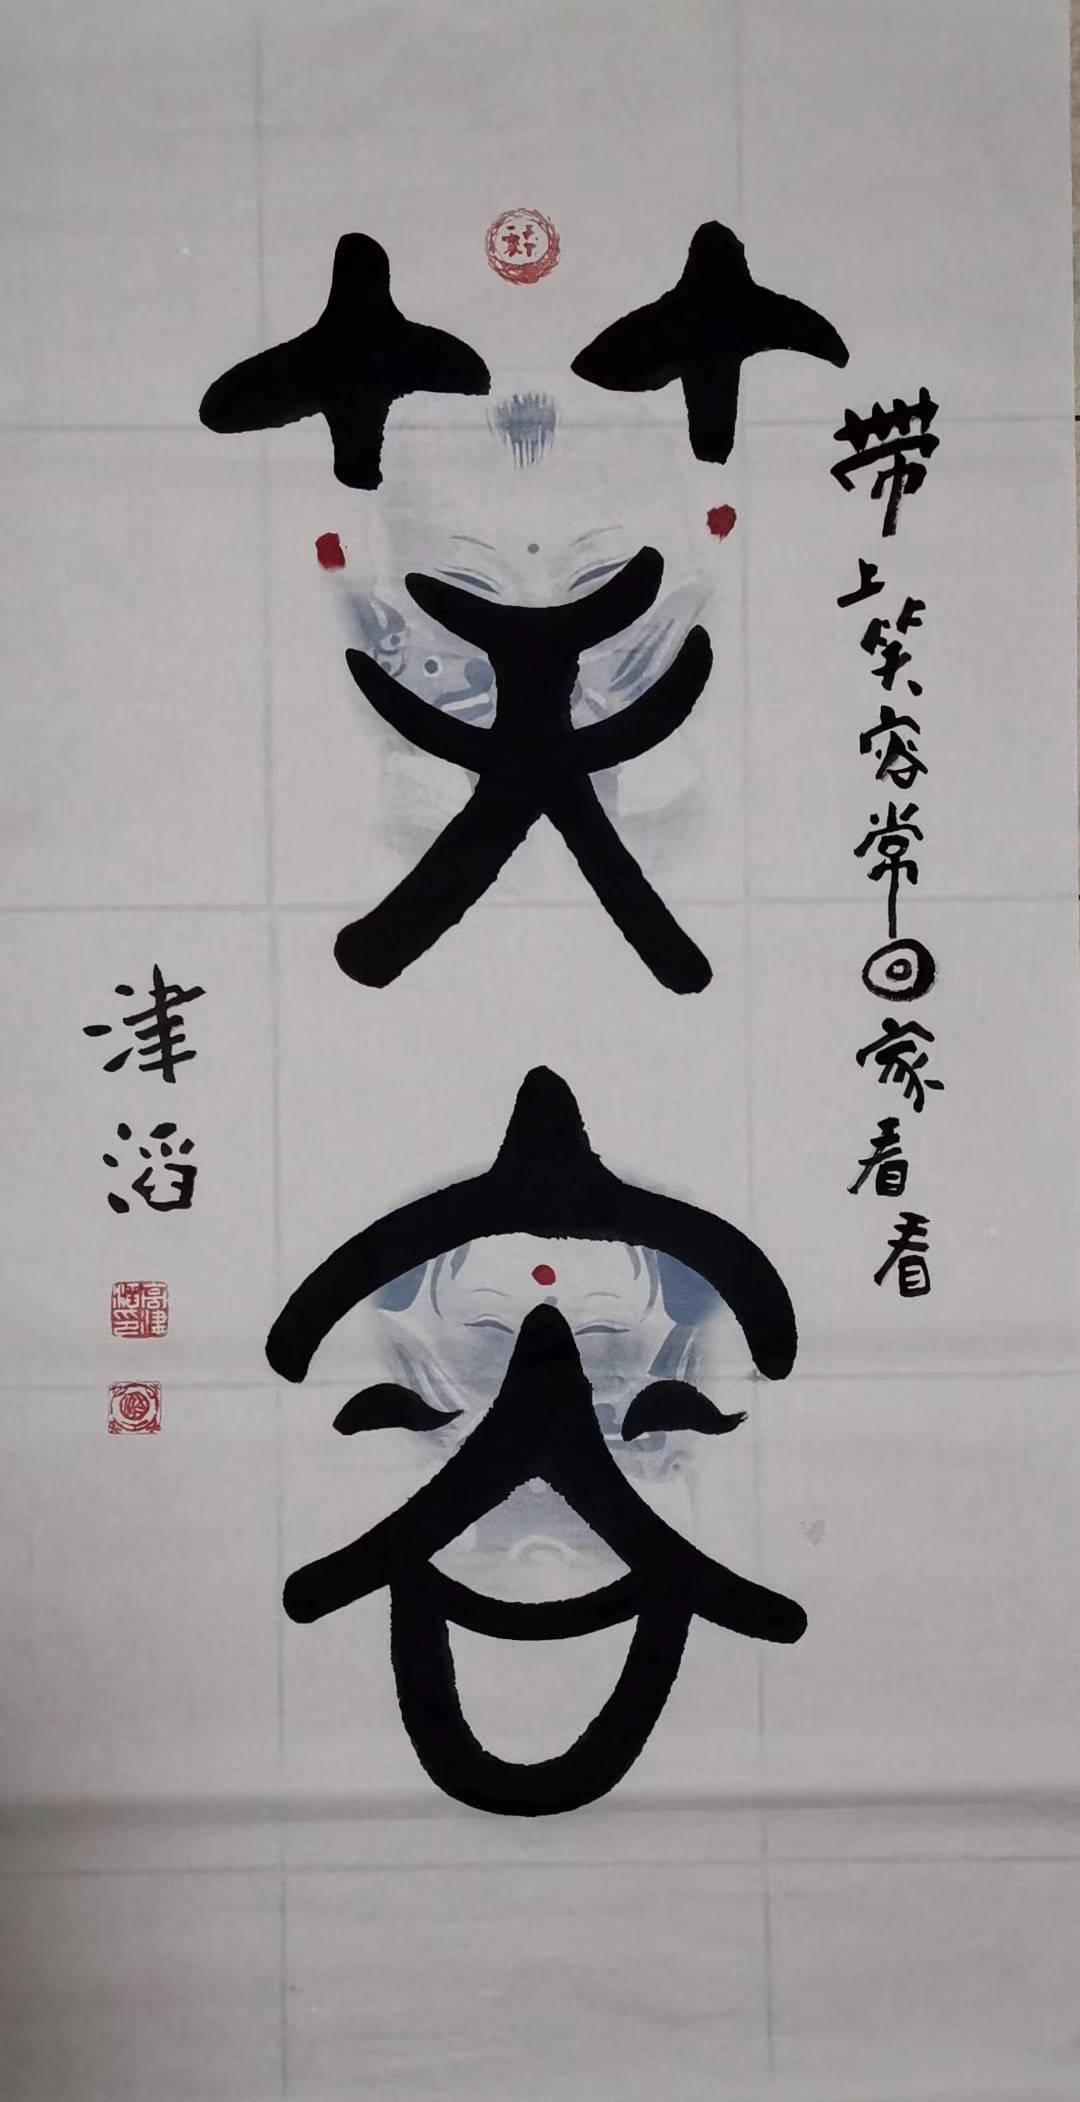 笑容
帶上笑容常回家看看
津滔